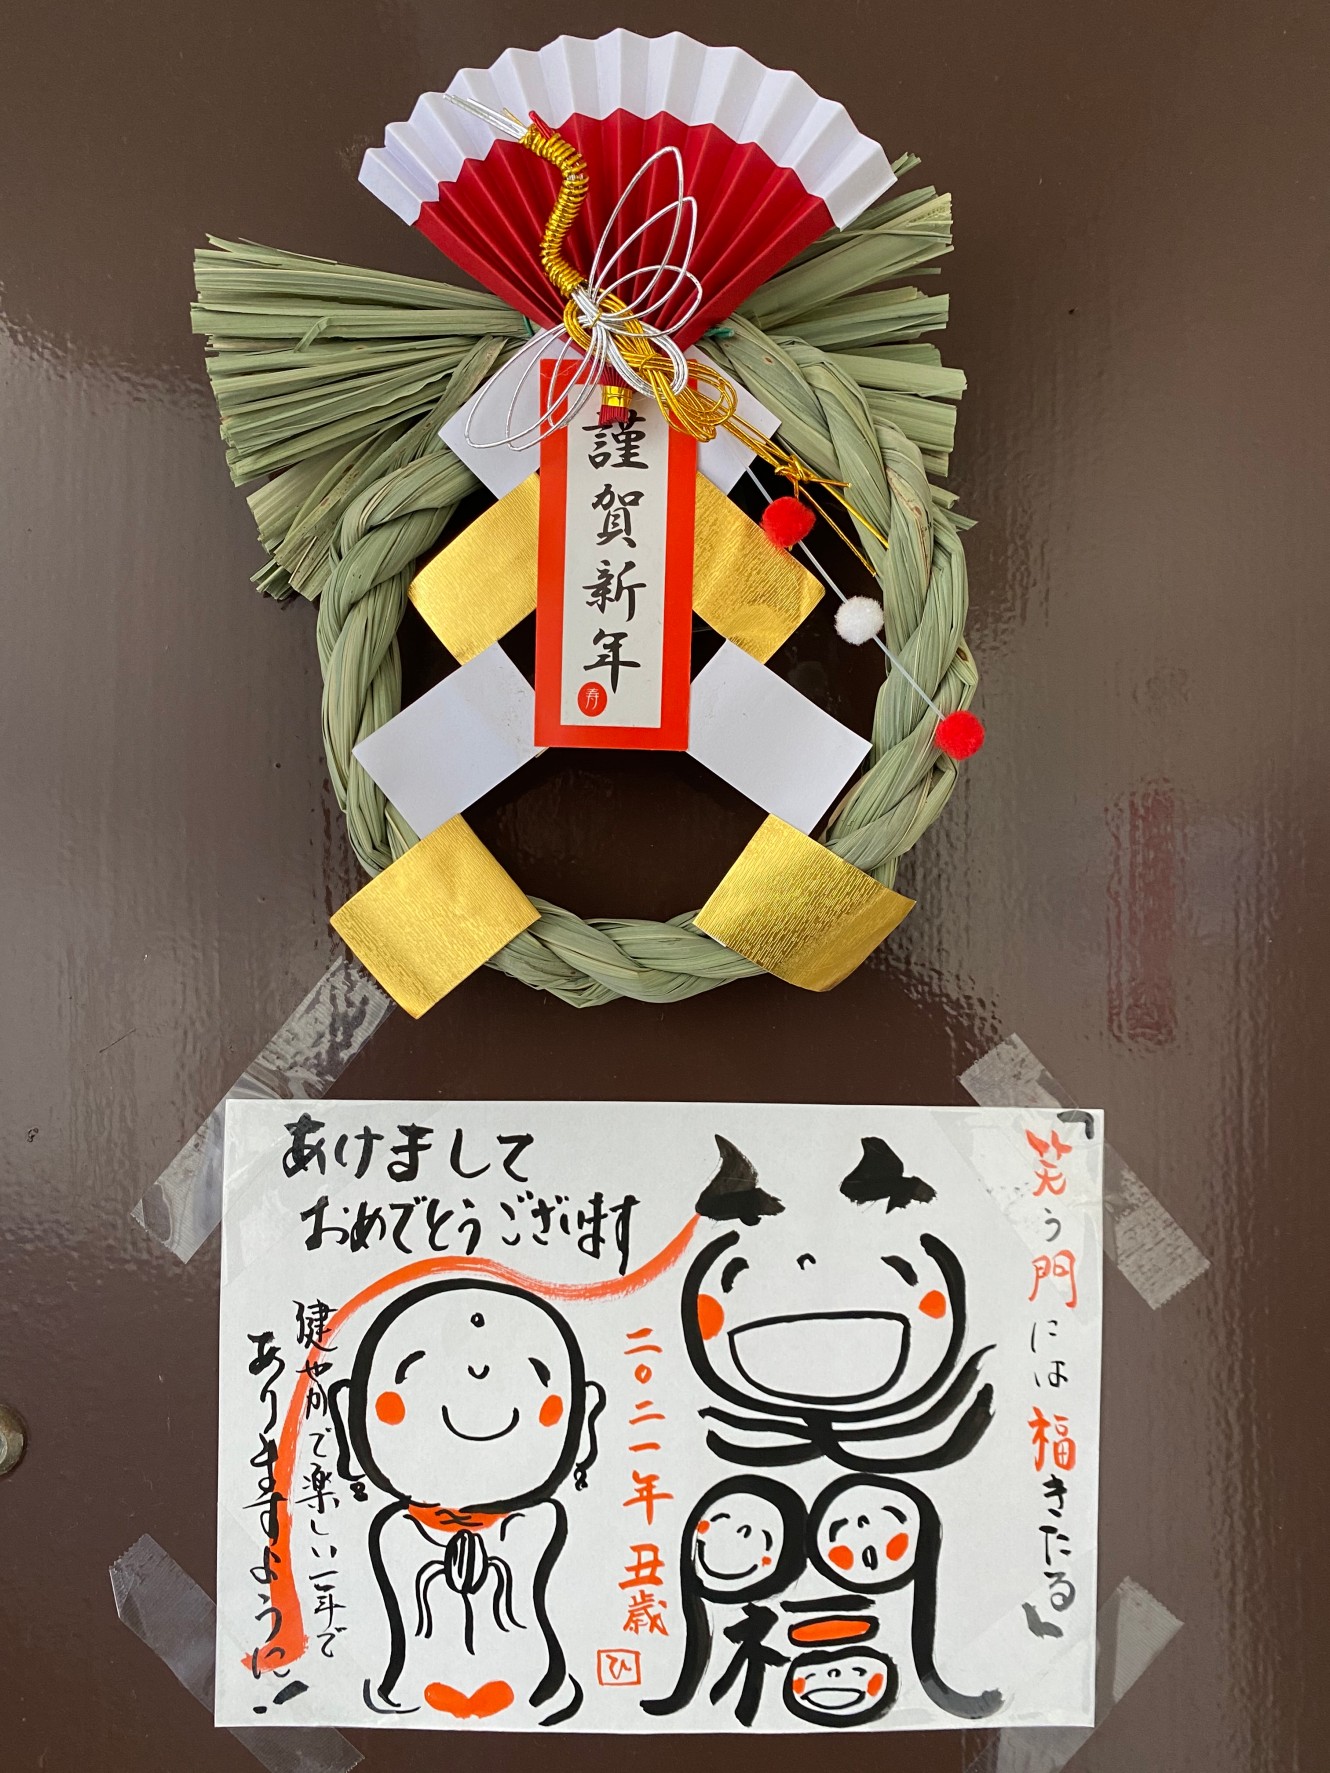 謹賀新年
寿
「笑う門には福きたる」
笑
福
二〇二一年 丑歳
ひ
あけまして
おめでとうございます
健やかで楽しい一年で
ありますように!